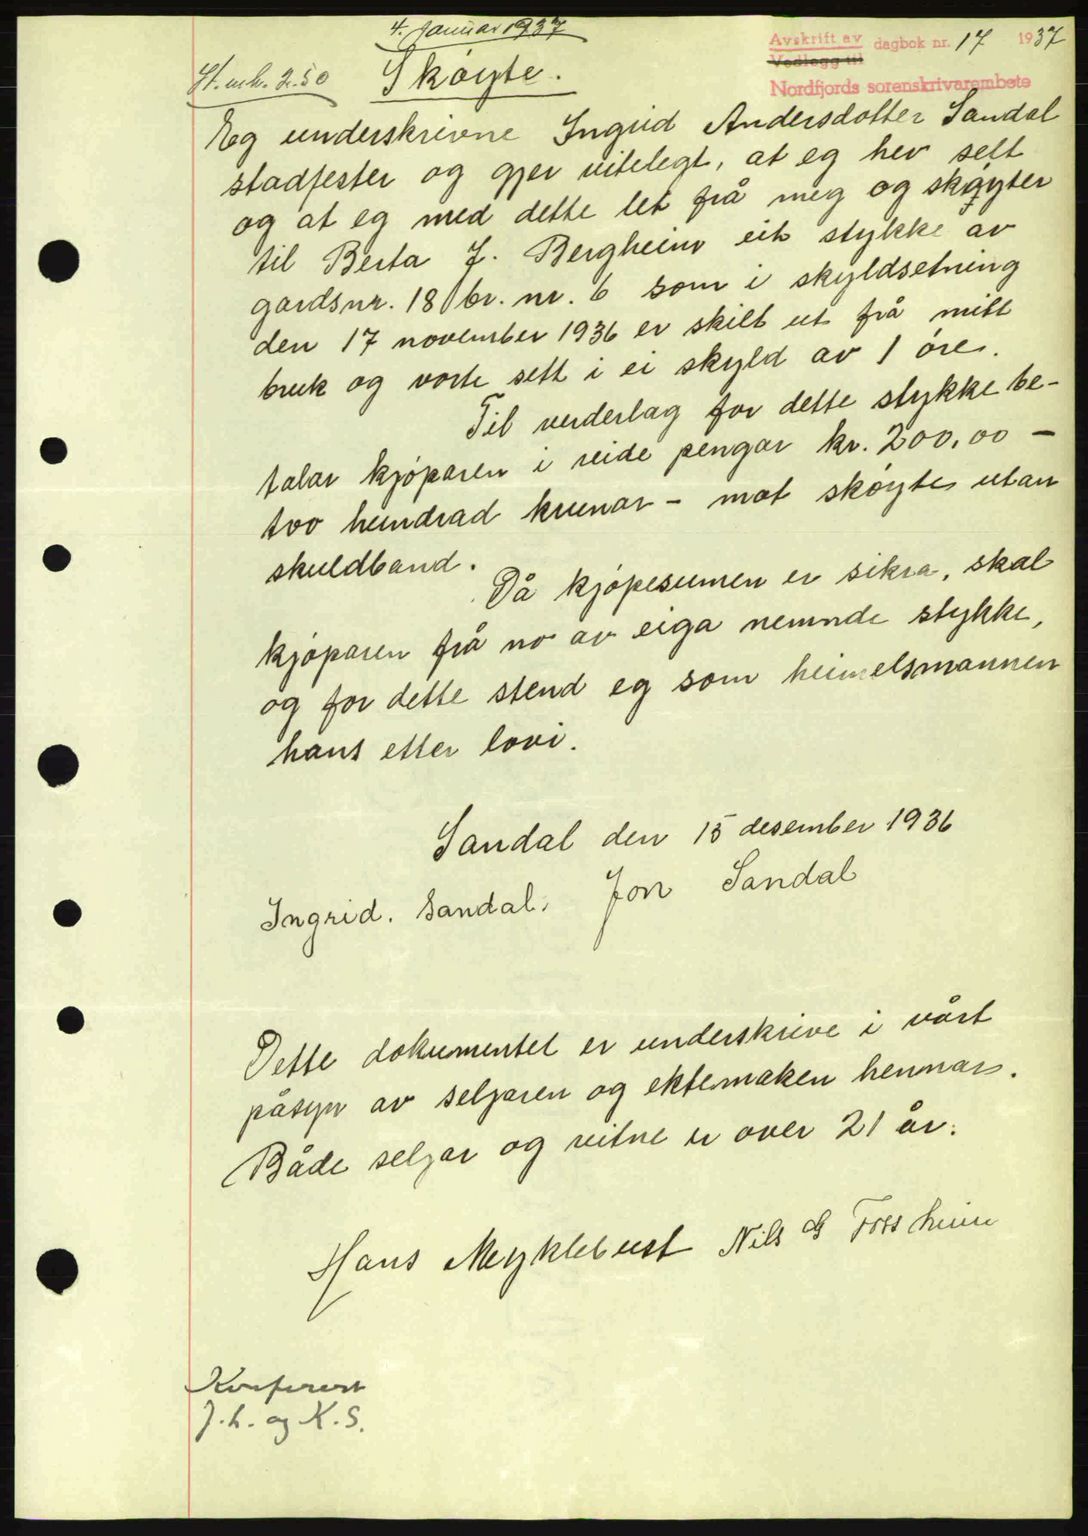 4. Januar 1937
Avskrift av dagbok nr. 17 1937
Vedlegg til
Nordfjords sorenskrivarembete
St.mk. 2.50 Skøyte.
Eg underskrivne Ingrid Andersdotter Sandal
stadfester og gjer vitelegt, at eg hev selt
og at eg med dette let frå meg og skøyter
til Berta J. Bergheim eit stykke av
gardsnr. 18 br. nr. 6 som i skyldsetning
den 17 november 1936 er skilt ut frå mitt
bruk og vorte sett i ei skyld av 1 øre.
Til vederlag for dette stykke be-
talar kjøparen i reide pengar kr. 200,00 -
tvo hundrad krunar - mot skøyte utan
skuldband.
Då kjøpesumen er sikra, skal
kjøparen frå no av eiga nemnde stykke,
og for dette stend eg som heimelsmannen
hans etter lovi.
Sandal den 15 desember 1936
Ingrid. Sandal. Jon Sandal
Dette dokumentet er underskrive i vårt
påsyn av seljaren og ektemaken hennars.
Både seljar og vitne er over 21 år.
Hans Myklebust Nils G Forsheim
Konferert
J.L. og K.S.